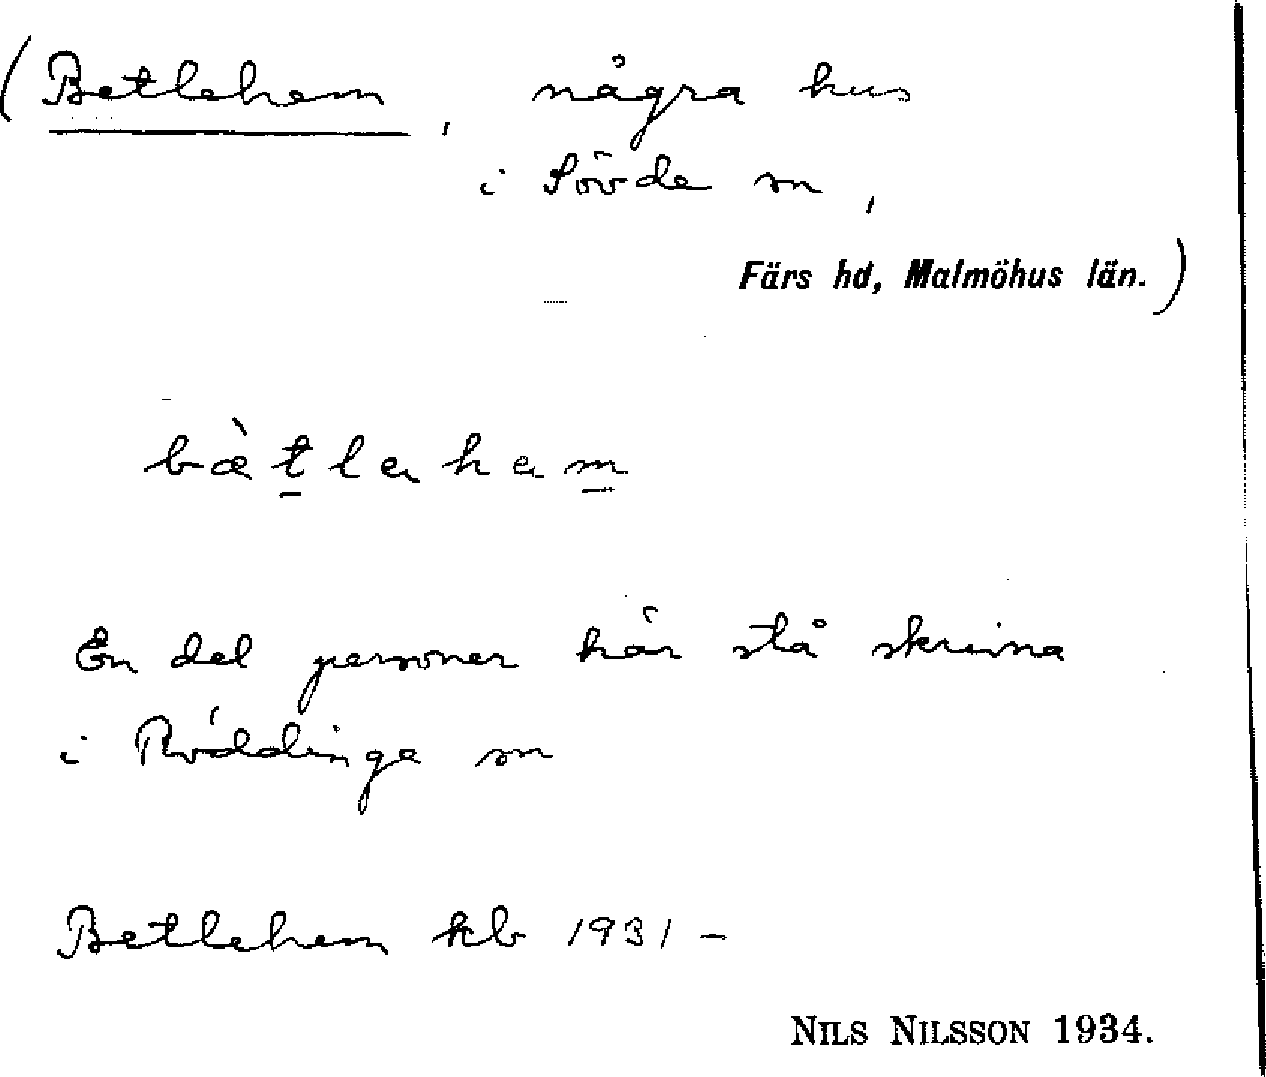 (Betlehem, några hus
i Sövde sn,
Färs hd, Malmöhus län.)
bæ̀t̲ləhəm̲
En del personer här stå skrivna
i Röddinge sn
Betlehem kb 1931 –
NILS NILSSON 1934.